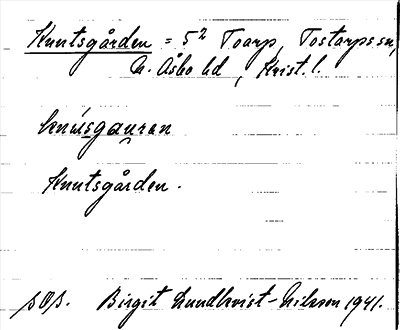 Knutsgården = 5² Toarp, Tostarps sn,
N. Åsbo hd, Krist. l.
knúsgauran
Knutsgården.
Birgit Lundkvist-Nilsson 1941.